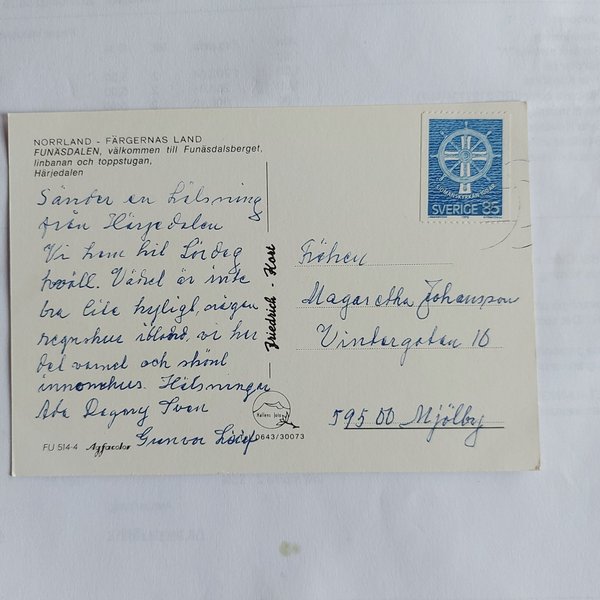 NORRLAND - FÄRGERNAS LAND
FUNÄSDALEN, välkommen till Funäsdalsberget,
linbanan och toppstugan,
Härjedalen
Sänder en Hälsning
från Härjedalen
Vi kom hit Lördag
kväll. Vädret är inte
bra lite kyligt, någon
regnskur ibland, vi har
det varmt och skönt
inomhus. Hälsningar
Ada Dagny Sven
Gunvor
FU 514-4 Agfacolor
0643/30073
Friedrich - Kort
SVERIGE 85
Fröken
Magaretha Johansson
Vintergatan 10
595 00 Mjölby